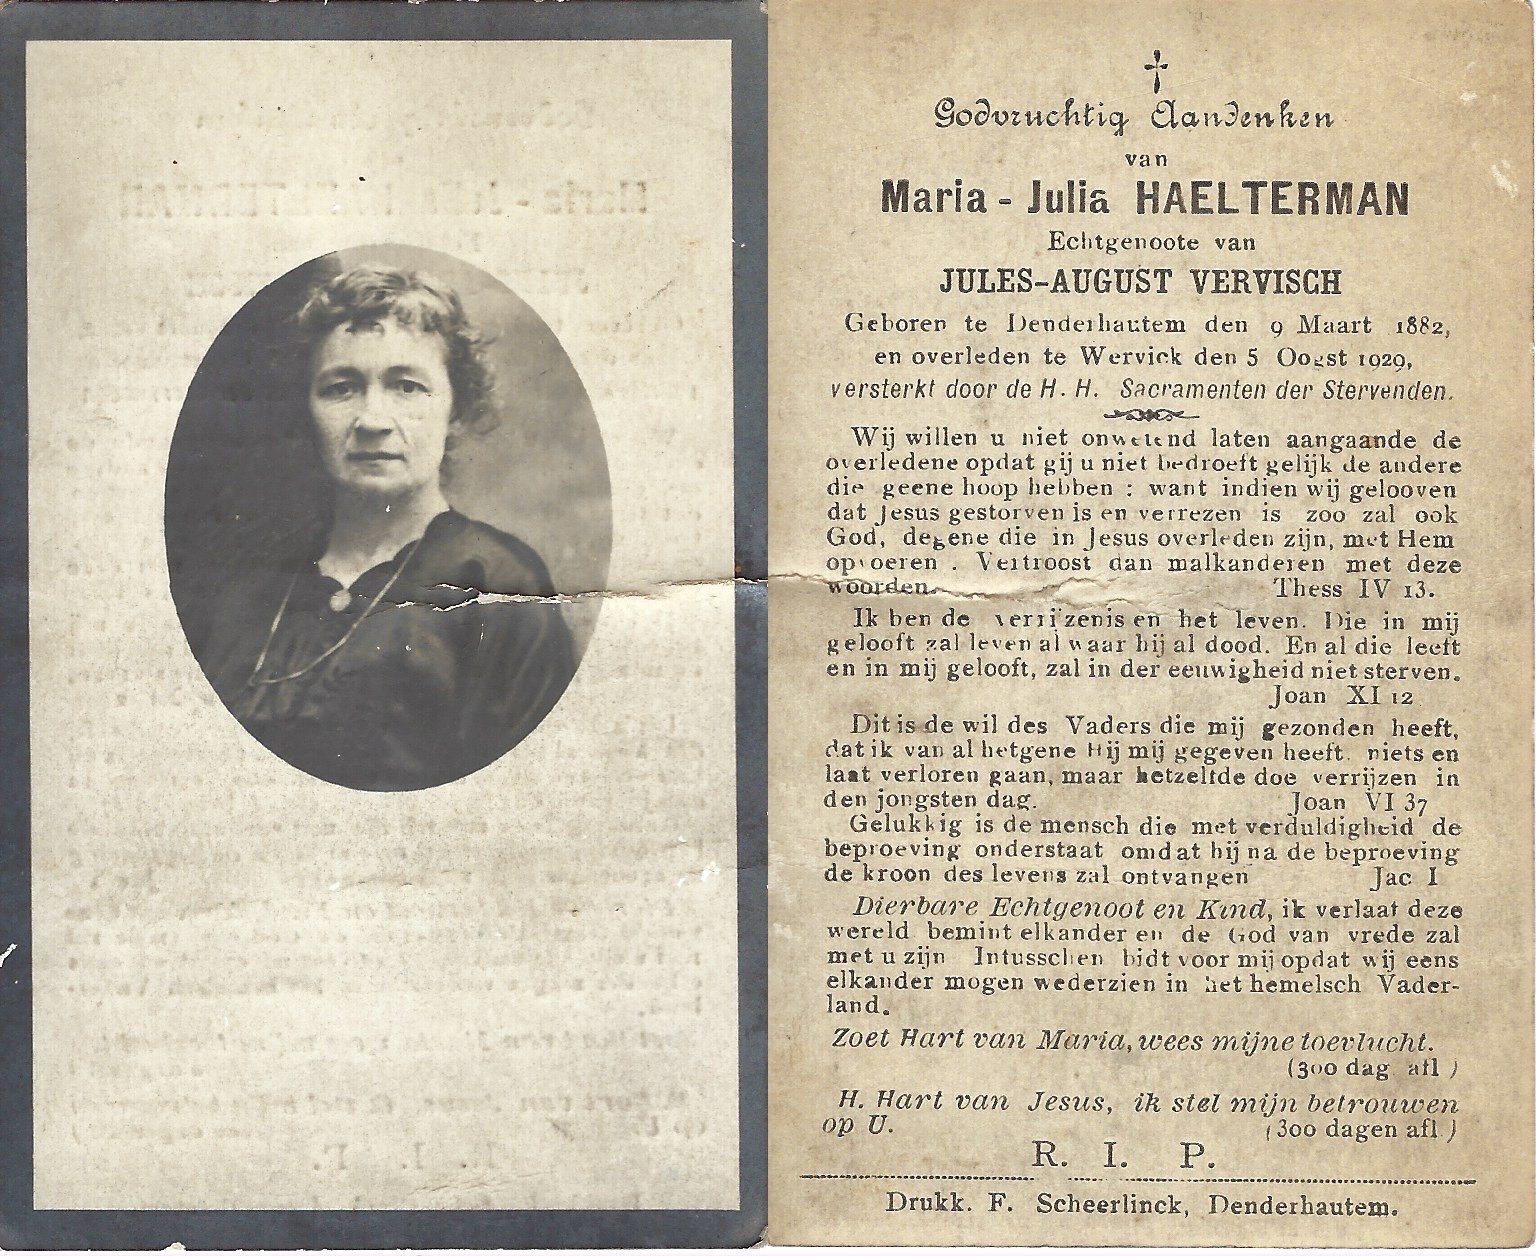 Godvruchtig Aandenken
van
Maria - Julia HAELTERMAN
Echtgenoote van
JULES-AUGUST VERVISCH
Geboren te Denderhautem den 9 Maart 1882,
en overleden te Wervick den 5 Oogst 1929,
versterkt door de H. H. Sacramenten der Stervenden.
Wij willen u niet onwetend laten aangaande de
overledene opdat gij u niet bedroeft gelijk de andere
die geene hoop hebben : want indien wij gelooven
dat Jesus gestorven is en verrezen is zoo zal ook
God, degene die in Jesus overleden zijn, met Hem
opvoeren . Vertroost dan malkanderen met deze
woorden. Thess IV 13.
Ik ben de verrijzenis en het leven. Die in mij
gelooft zal leven al waar hij al dood. En al die leeft
en in mij gelooft, zal in der eeuwigheid niet sterven.
Joan XI 12
Dit is de wil des Vaders die mij gezonden heeft,
dat ik van al hetgene Hij mij gegeven heeft. niets en
laat verloren gaan, maar hetzelfde doe verrijzen in
den jongsten dag. Joan VI 37
Gelukkig is de mensch die met verduldigheid de
beproeving onderstaat omdat hij na de beproeving
de kroon des levens zal ontvangen Jac I
Dierbare Echtgenoot en Kind, ik verlaat deze
wereld bemint elkander en de God van vrede zal
met u zijn Intusschen bidt voor mij opdat wij eens
elkander mogen wederzien in het hemelsch Vader-
land.
Zoet Hart van Maria, wees mijne toevlucht.
(300 dag afl )
H. Hart van Jesus, ik stel mijn betrouwen
op U. (300 dagen afl )
R. I. P.
Drukk. F. Scheerlinck, Denderhautem.